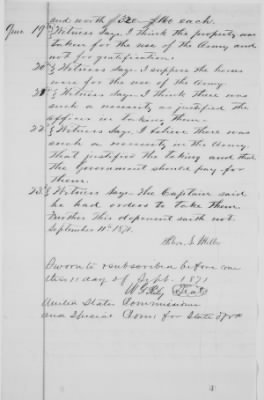 and worth $320 - $160 each.
Ques. 19th } Witness Says. I think the property was
taken for the use of the Army and
not for gratification.
20 " } Witness Says. I suppose the horses
were for the use of the Army
21 " } Witness Says. I think there was
such a necessity as justified the
officer in taking them.
22 " } Witness Says. I believe there was
such a necessity in the Army,
that justified the taking and that
the Government should pay for
them.
23 " } Witness Says - The Captain said
he had orders to take them
Further this deponent saith not.
September 11th 1871.
Sworn to & subscribed before me
this 11 day of Sept. 1871
United States Commissioner
and Special Com: for State of Va